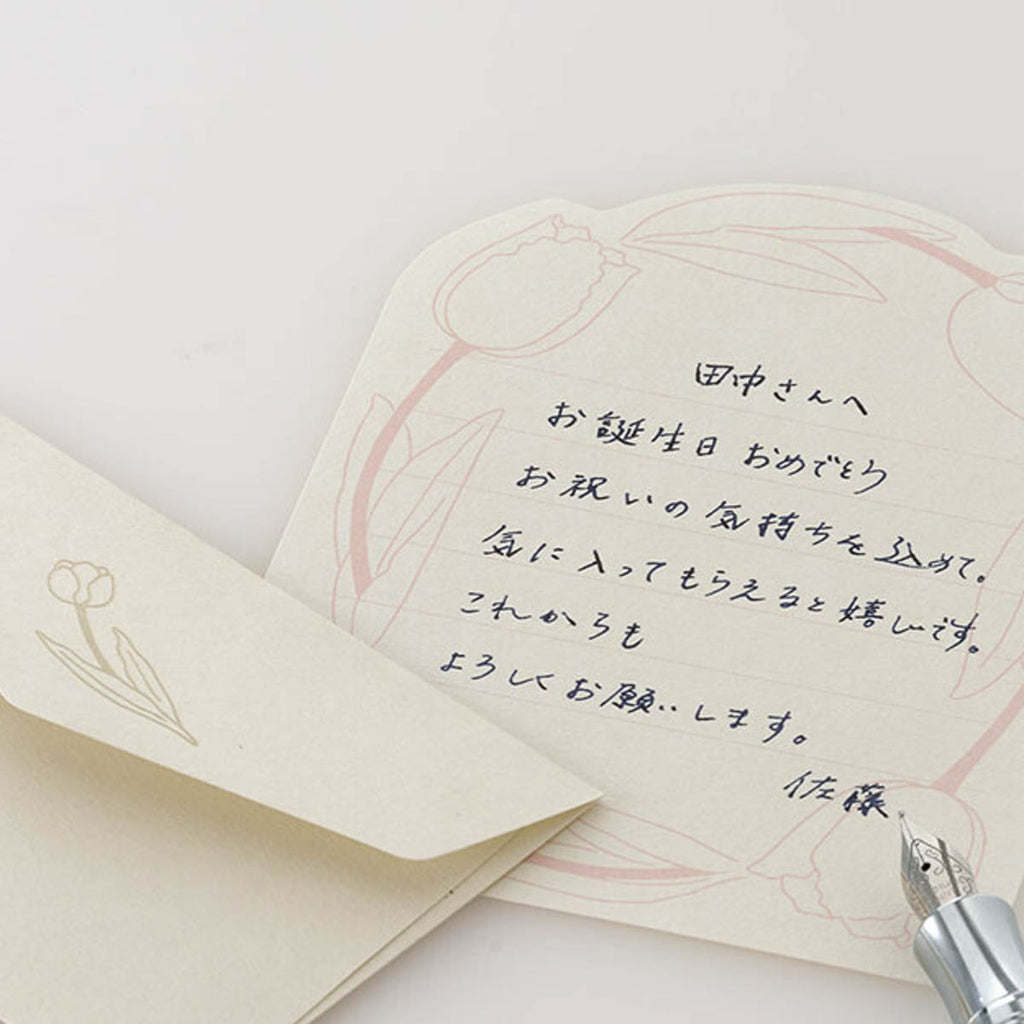 田中さんへ
お誕生日 おめでとう
お祝いの気持ちを込めて。
気に入ってもらえると嬉しいです。
これからも
よろしくお願いします。
佐藤